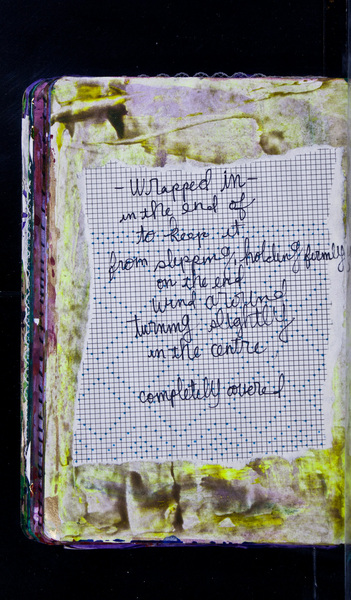 - Wrapped in -
in the end of
to keep it
from slipping, holding firmly
on the end
wind a wind
turning slightly
in the centre,
completely covered